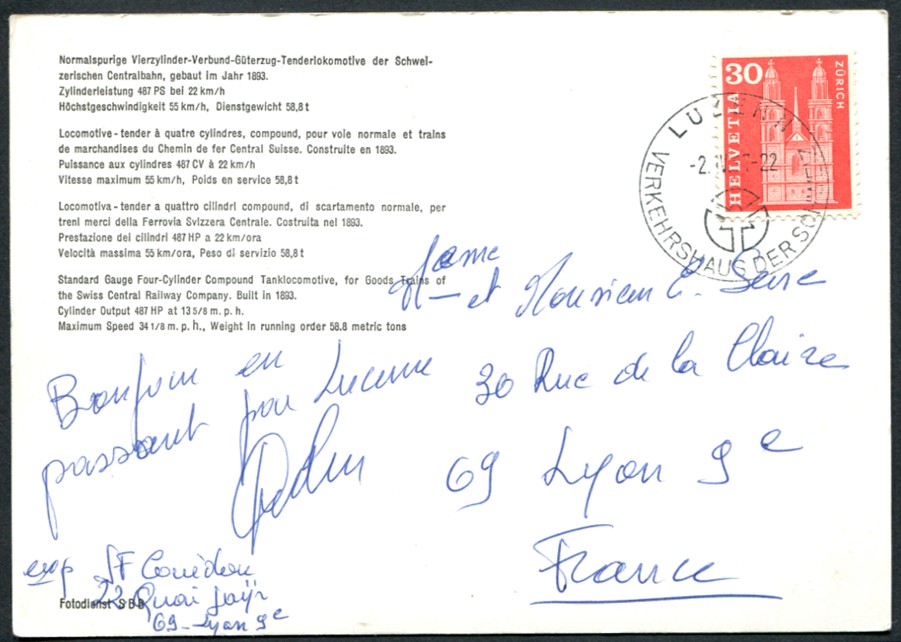 Normalspurige Vierzylinder-Verbund-Güterzug-Tenderlokomotive der Schwei-
zerischen Centralbahn, gebaut im Jahr 1893.
Zylinderleistung 487 PS bei 22 km/h
Höchstgeschwindigkeit 55 km/h, Dienstgewicht 58,8 t
Locomotive-tender à quatre cylindres, compound, pour voie normale et trains
de marchandises du Chemin de fer Central Suisse. Construite en 1893.
Puissance aux cylindres 487 CV à 22 km/h
Vitesse maximum 55 km/h, Poids en service 58,8 t
Locomotiva-tender a quattro cilindri compound, di scartamento normale, per
treni merci della Ferrovia Svizzera Centrale. Costruita nel 1893.
Prestazione dei cilindri 487 HP a 22 km/ora
Velocità massima 55 km/ora, Peso di servizio 58,8 t
Standard Gauge Four-Cylinder Compound Tanklocomotive, for Goods Trains of
the Swiss Central Railway Company. Built in 1893.
Cylinder Output 487 HP at 13 5/8 m. p. h.
Maximum Speed 34 1/8 m. p. h., Weight in running order 58.8 metric tons
30
HELVETIA
ZÜRICH
LUZERN
-2. -22
VERKEHRSHAUS DER SCHWEIZ
Bonjour en
passant par Lucerne
Mme
et Monsieur E.
30 Rue de la Claire
69 Lyon 9e
France
exp
22 Quai Jaÿr
69-Lyon 9e
Fotodienst SBB